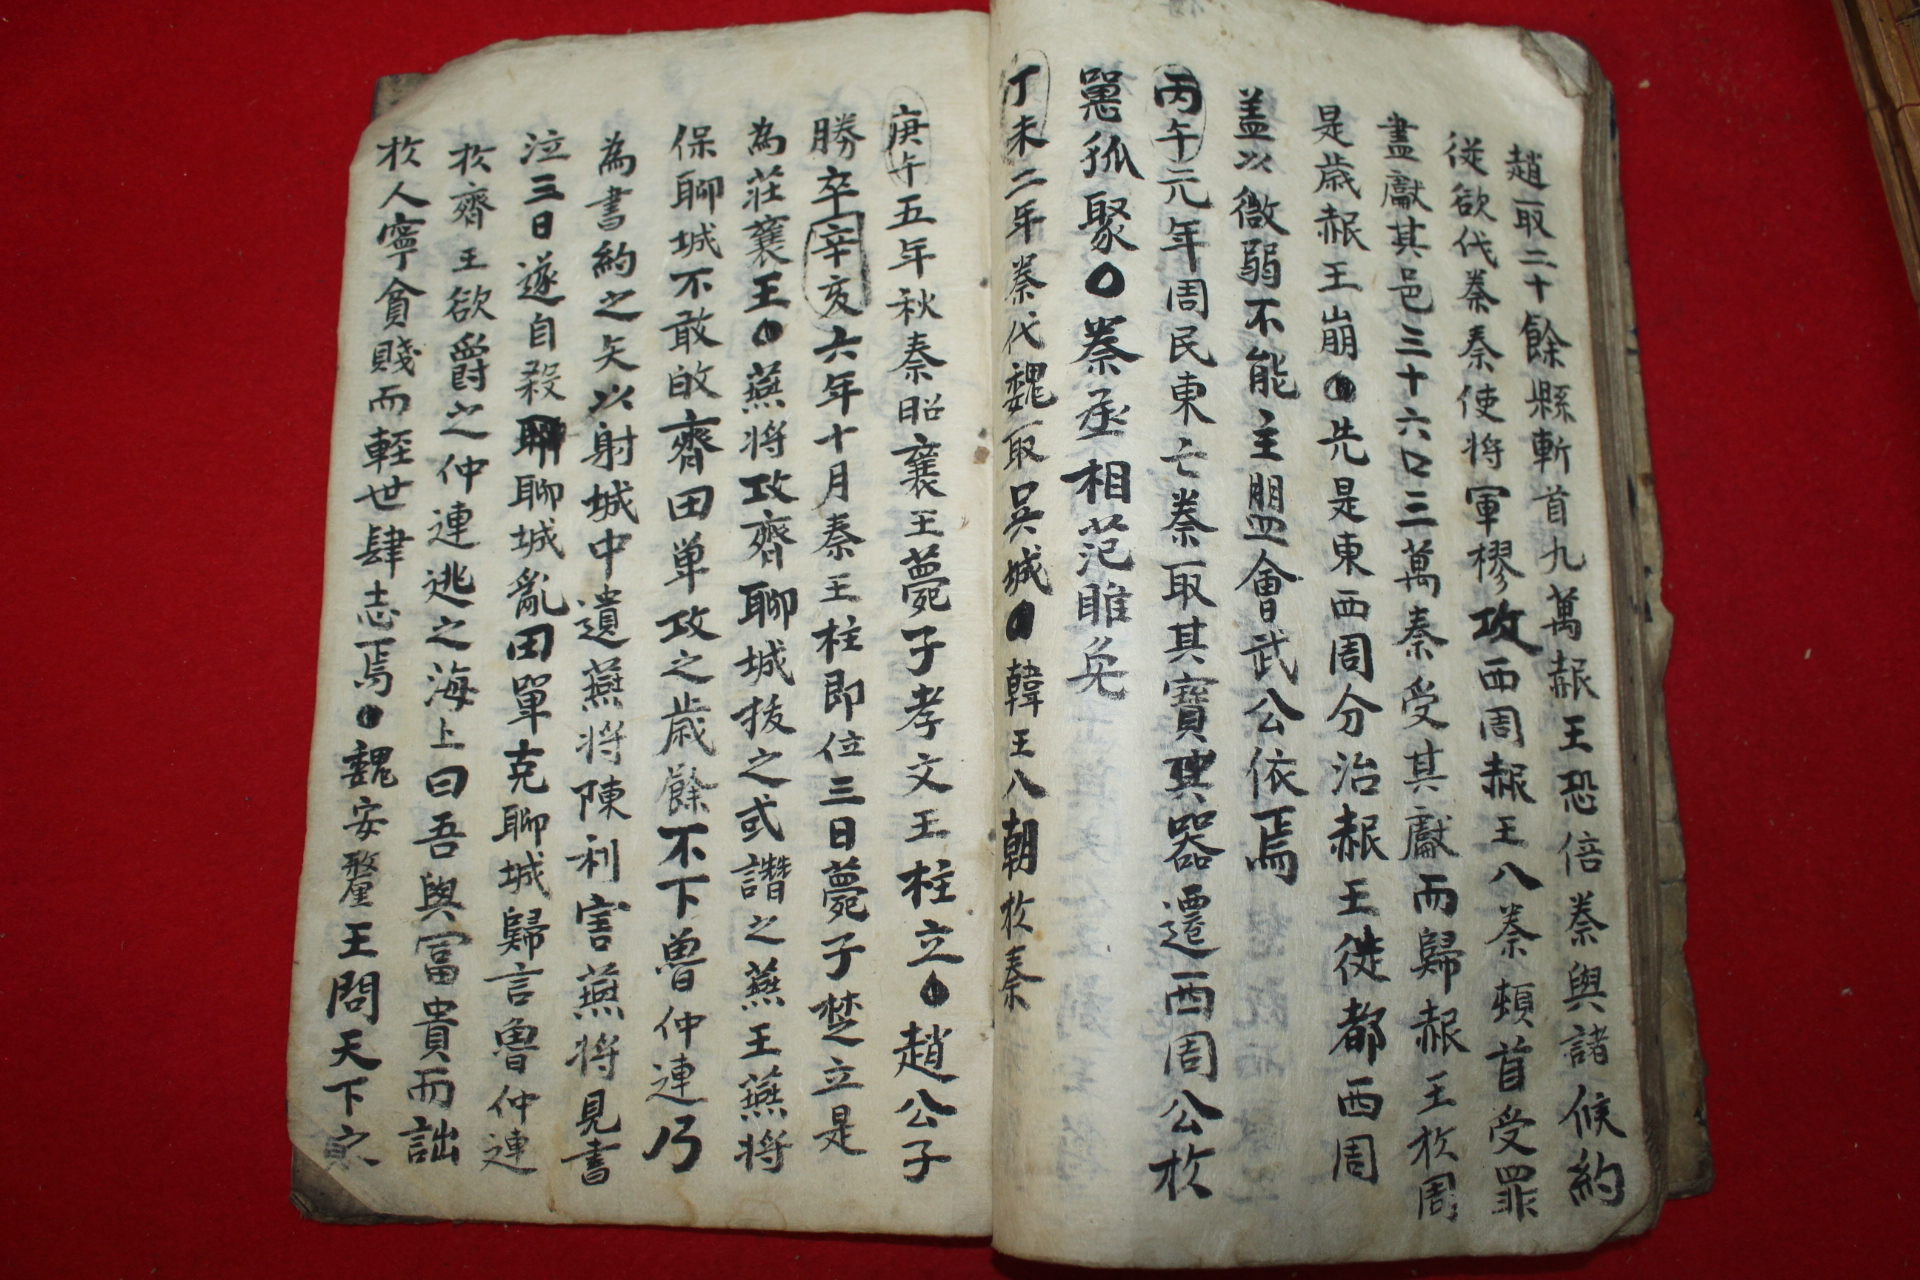 趙取二十餘縣斬首九萬赧王恐倍秦與諸候約
從欲伐秦秦使將軍樛攻西周赧王入秦頓首受罪
盡獻其邑三十六口三萬秦受其獻而歸赧王於周
是歲赧王崩○先是東西周分治赧王徙都西周
盖以微弱不能主盟會武公依焉
丙午元年周民東亡秦取其寶器遷西周公於
㥴狐聚○秦丞相范睢免
丁未二年秦伐魏取吳城○韓王入朝於秦
庚午五年秋秦昭襄王薨子孝文王柱立○趙公子
勝卒辛亥六年十月秦王柱即位三日薨子楚立是
為莊襄王○燕將攻齊聊城拔之或譖之燕王燕將
保聊城不敢敀齊田単攻之歲餘不下魯仲連乃
為書約之矢以射城中遺燕將陳利害燕將見書
泣三日遂自殺聊城亂田單克聊城歸言魯仲連
於齊王欲爵之仲連逃之海上曰吾與富貴而詘
於人寧貧賤而輕世肆志焉○魏安釐王問天下之